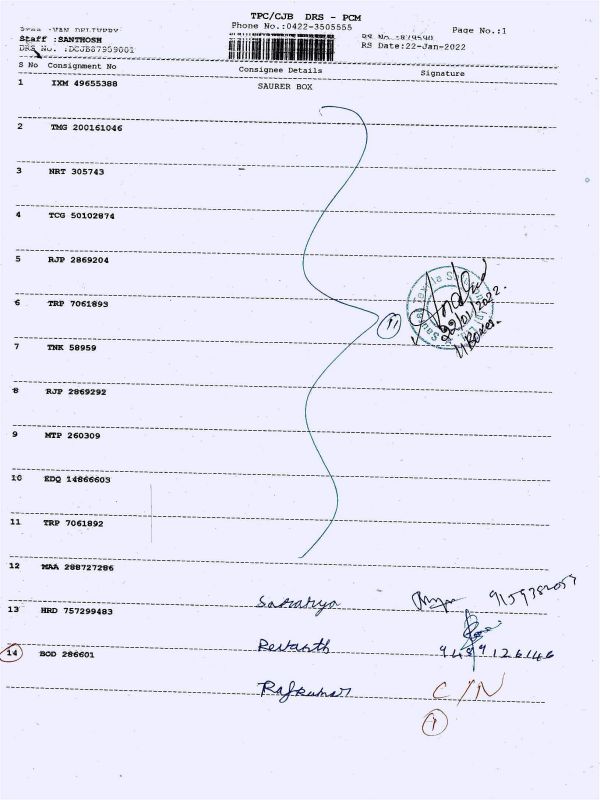 TPC/CJB DRS - PCM
Phone No.:0422-3505555
Page No.:1
Area :VAN DELIVERY
Staff :SANTHOSH
RS No.:879590
DRS No. :DCJB87959001
RS Date:22-Jan-2022
S No Consignment No Consignee Details Signature
1 IXM 49655388 SAURER BOX
2 TMG 200161046
3 NRT 305743
4 TCG 50102874
5 RJP 2869204
6 TRP 7061893
11
22/01/2022.
11 Boxes.
7 TNK 58959
8 RJP 2869292
9 MTP 260309
10 EDQ 14866603
11 TRP 7061892
12 MAA 288727286
13 HRD 757299483
Revanth 9489126146
14 BOD 286601
Rajkumar C/N
1